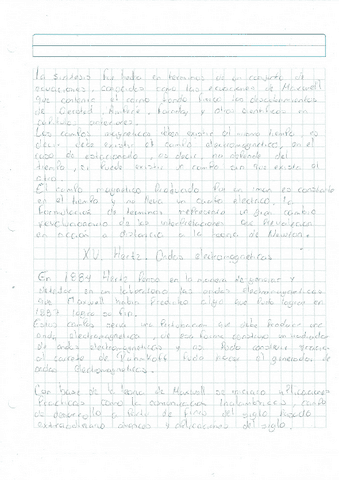 La sintesis fue hecha en terminos de un conjunto de
ecuaciones, conocidas como las ecuaciones de Maxwell
que contenia el como fondo fisico los descubrimientos
de Oersted, Ampere, Faraday y otros cientificos en
anteriores.
Los campos magneticos deben existir al mismo tiempo, es
decir debe existir el campo electromagnetico, en el
caso de estacionario, es decir, no depende del
tiempo, si puede existir el campo sin que exista el
otro.
El campo magnetico producido por un iman es constante
en el tiempo y no lleva un campo electrico, la
formulacion de terminos represento un gran cambio
revolucionario de las interpretaciones que
en accion a distancia o la teoria de Newton.
XV. Hertz. Ondas electromagneticas
En 1884 Hertz penso en la manera de generar y
detectar en un laboratorio las ondas electromagneticas
que Maxwell habia predicho algo que pudo lograr en
1887 logro su fin.
Estos cambios seria una perturbacion que debe producir una
onda electromagnetica, de esa forma construyo un
de ondas electromagneticas y las pudo construir gracias
al carrete de Ruhmkorff pudo hacer el generador de
ondas electromagneticas.
Con base de la teoria de Maxwell se aplicaciones
practicas como la comunicacion inalambrica,
se desarrollo a parte de fines del siglo pasado
extraordinario avances y aplicaciones del siglo.